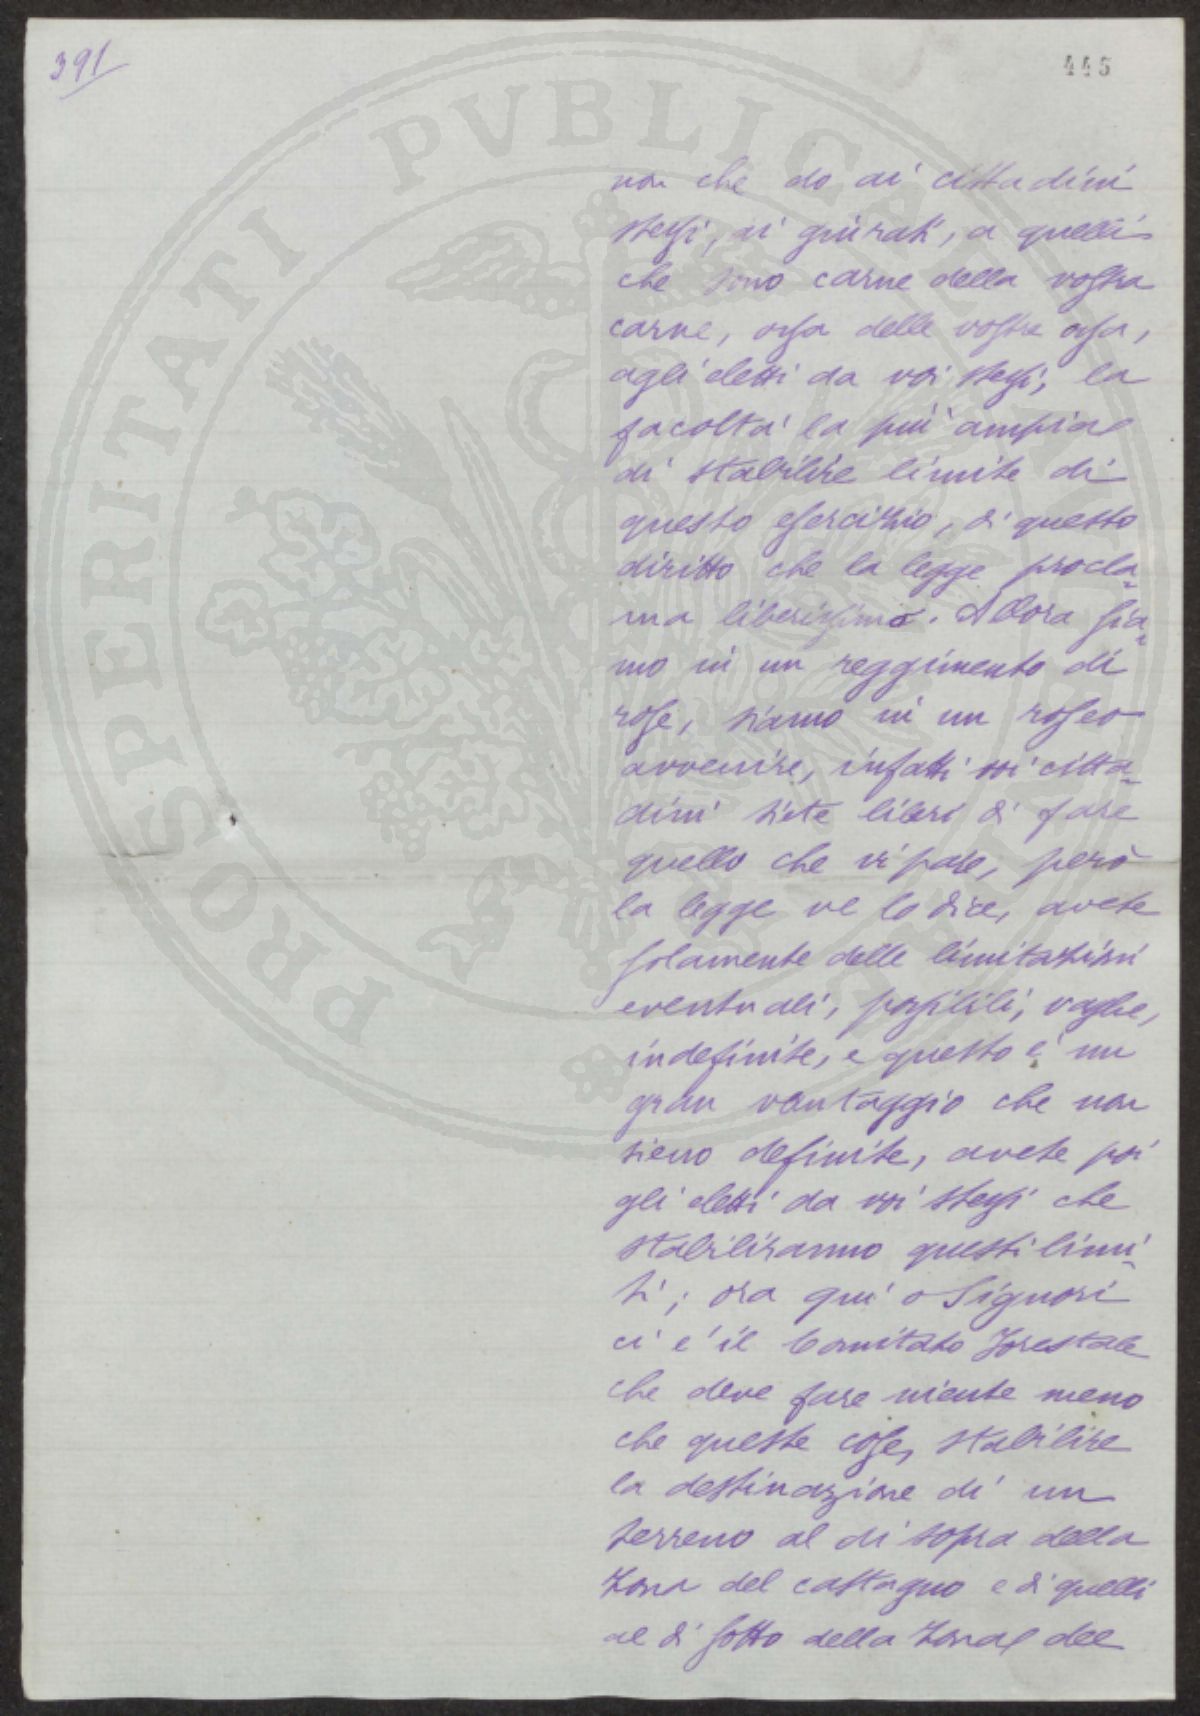 391
445
PROSPERITATI PVBLICAE
non che do ai cittadini
stessi, ai giurati, a quelli
che sono carne della vostra
carne, ossa delle vostre ossa,
agli eletti da voi stessi, la
facoltà la più ampia
di stabilire limite di
questo esercizio, di questo
diritto che la legge procla-
ma liberissimo. Allora sia-
mo in un reggimento di
rose, siamo in un roseo
avvenire, infatti voi citta-
dini siete liberi di fare
quello che vi pare, però
la legge ve lo dice, avete
solamente delle limitazioni
eventuali, possibili, vaghe,
indefinite, e questo è un
gran vantaggio che non
sieno definite, avete poi
gli eletti da voi stessi che
stabiliranno questi limi-
ti; ora qui o Signori
ci è il Comitato Forestale
che deve fare niente meno
che queste cose, stabilire
la destinazione di un
terreno al di sopra della
zona del castagno e di quelli
al di sotto della zona del